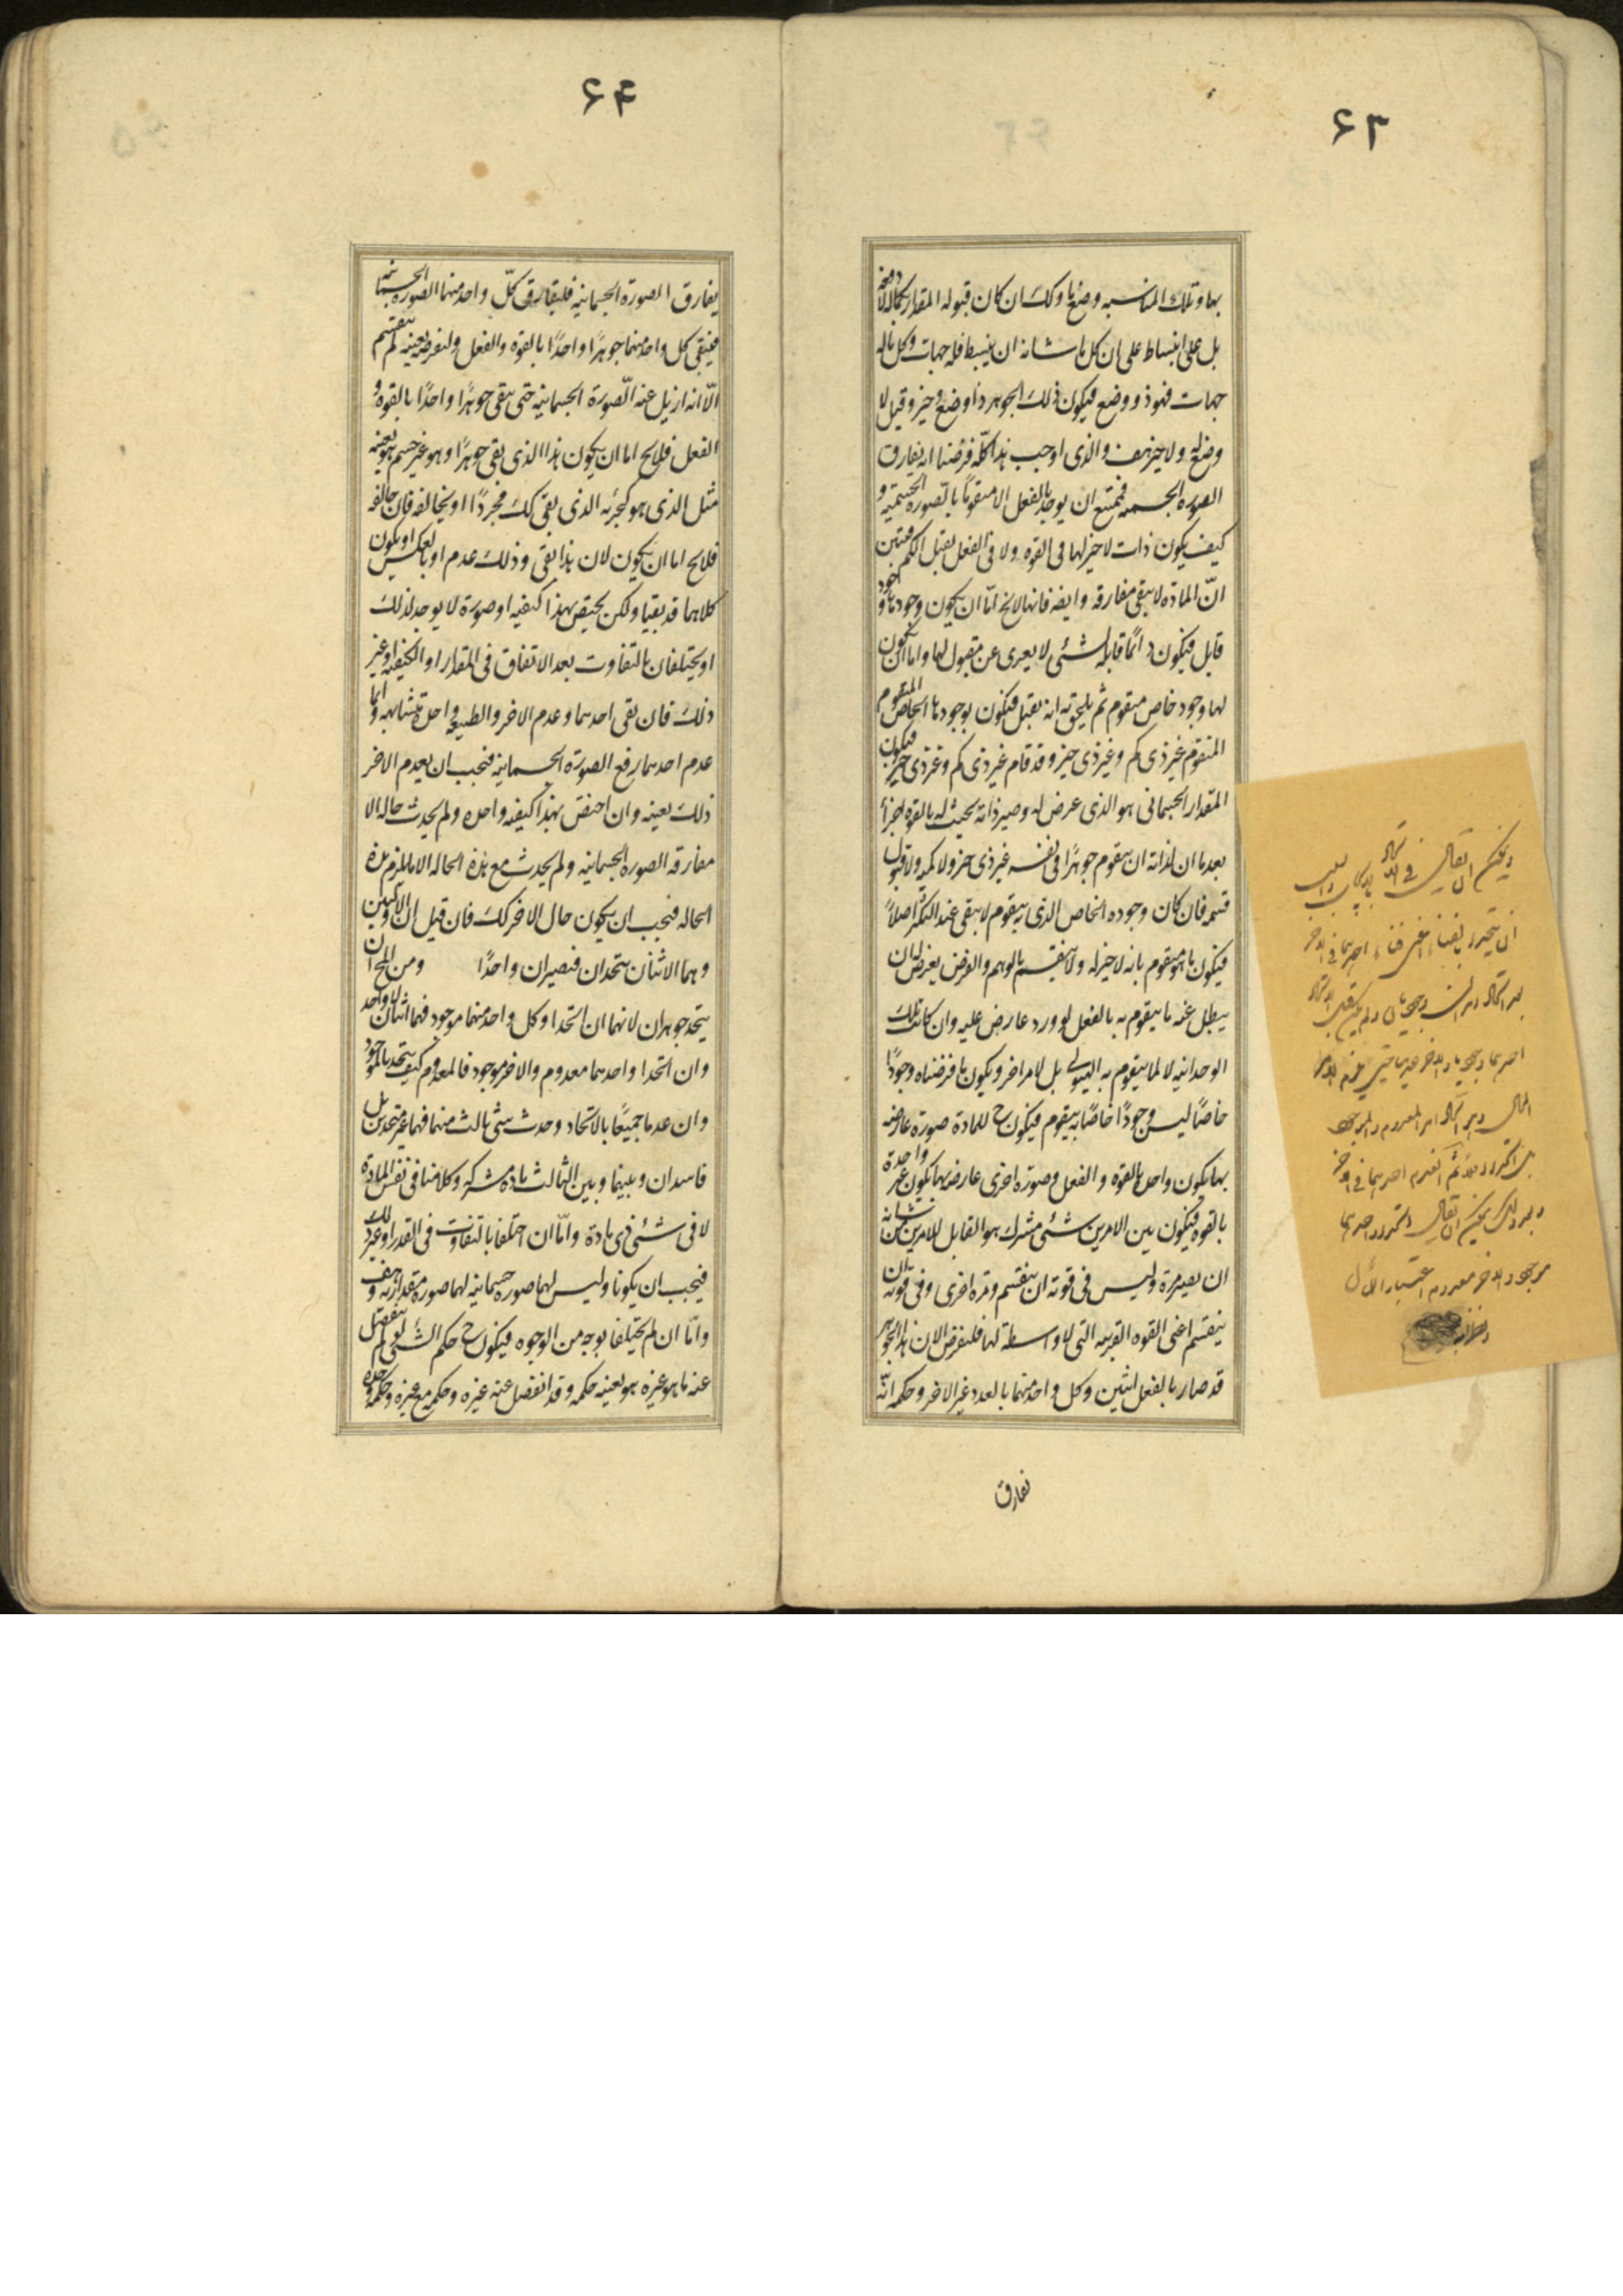 ۶۳
بها وتلك المناسبه وضع ما وكك ان كان قبوله المقدار بكماله لا دفعه
بل على انبساط على ان كل ما شانه ان ينبسط فله جهات وكل ماله
جهات فهو ذو وضع فيكون ذلك الجوهر ذا وضع وحيز وقيل لا
وضع له ولا حيز هف والذى اوجب هذا كله فرضنا انه يفارق
الصوره الجسميه فيمتنع ان يوجد بالفعل الا متقوما بالصوره الجسميه و
كيف يكون ذات لا حيز لها فى القوه ولا فى الفعل يقبل الكم فتبين
ان المادة لا يبقى مفارقه وايضه فانها لا يخ اما ان يكون وجودها وجود
قابل فيكون دائما قابلة لشئى لا يعرى عن مقبول لها واما ان يكون
لها وجود خاص متقوم ثم يلحق به انه يقبل فيكون بوجودها الخاص المتقوم
المتقوم غير ذى كم وغير ذى حيز وقد قام غير ذى كم وغير ذى حيز فيكون
المقدار الجسمانى هو الذى عرض له وصير ذاته بحيث له بالقوه اجزاء
بعد ما ان لذاته ان يتقوم جوهرا فى نفسه غير ذى حيز ولا كميه ولا قبول
قسمه فان كان وجوده الخاص الذى به يتقوم لا يبقى عند التكثر اصلا
فيكون ما هو متقوم بانه لا حيز له ولا ينقسم بالوهم والفرض يعرض له ان
يبطل عنه ما يتقوم به بالفعل لورود عارض عليه وان كانت تلك
الوحدانيه لا لما يتقوم به الهيولى بل لامر اخر ويكون ما فرضناه وجودا
خاصا ليس وجودا خاصا به يتقوم فيكون ح للمادة صورة عارضه
بها يكون واحدة بالقوه والفعل وصوره اخرى عارضه بها يكون غير واحدة
بالقوه فيكون بين الامرين شئى مشترك هو القابل للامرين من شانه
ان يصير مرة وليس فى قوته ان ينقسم ومره اخرى وفى قوته ان
ينقسم اعنى القوه القريبه التى لا واسطة لها فلنفرض الان هذا الجوهر
قد صار بالفعل اثنين وكل واحد منهما بالعدد غير الاخر وحكمه انه
يفارق
ويمكن ان يقال فى
بعد ذلك يمكن ان يقال
موجود والاخر معدوم
۶۴
يفارق الصورة الجسمانيه فليفارق كل واحد منهما الصوره الجسمانيه
فيبقى كل واحد منهما جوهرا واحدا بالقوه والفعل ولنفرضه بعينه لم ينقسم
الا انه ازيل عنه الصورة الجسمانيه حتى يبقى جوهرا واحدا بالقوه و
الفعل فلا يخ اما ان يكون هذا الذى بقى جوهرا وهو غير جسم هو بعينه
مثل الذى هو كجزئه الذى بقى كك مجردا او يخالفه فان خالفه
فلا يخ اما ان يكون لان هذا بقى وذلك عدم او بالعكس او يكون
كلاهما قد بقيا ولكن يختص بهذا كيفيه او صورة لا يوجد لذلك
او يختلفان بالتفاوت بعد الاتفاق فى المقدار او الكيفيه او غير
ذلك فان بقى احدهما وعدم الاخر والطبيعة واحدة متشابهه وانما
عدم احدهما رفع الصورة الجسمانيه فيجب ان يعدم الاخر
ذلك بعينه وان اختص بهذا كيفيه واحده ولم يحدث حاله الا
مفارقه الصورة الجسمانيه ولم يحدث مع هذه الحاله الا ما يلزم هذه
الحاله فيجب ان يكون حال الاخر كك فان قيل ان الاولين
وهما الاثنان يتحدان فيصيران واحدا ومن المحال ان
يتحد جوهران لانهما ان اتحدا وكل واحد منهما موجود فهما اثنان لا واحد
وان اتحدا واحدهما معدوم والاخر موجود فالمعدوم كيف يتحد بالموجود
وان عدما جميعا بالاتحاد وحدث شئى ثالث منهما فهما غير متحدين بل
فاسدان وبينهما وبين الثالث مادة مشتركه وكلامنا فى نفس المادة
لا فى شئى ذى مادة واما ان اختلفا بالتفاوت فى القدر او غير ذلك
فيجب ان يكونا وليس لهما صوره جسمانيه لهما صوره مقداريه وهف
واما ان لم يختلفا بوجه من الوجوه فيكون ح حكم الشئى لو لم ينفصل
عنه ما هو غيره هو بعينه حكمه وقد انفصل عنه غيره وحكمه مع غيره وحكمه وحده